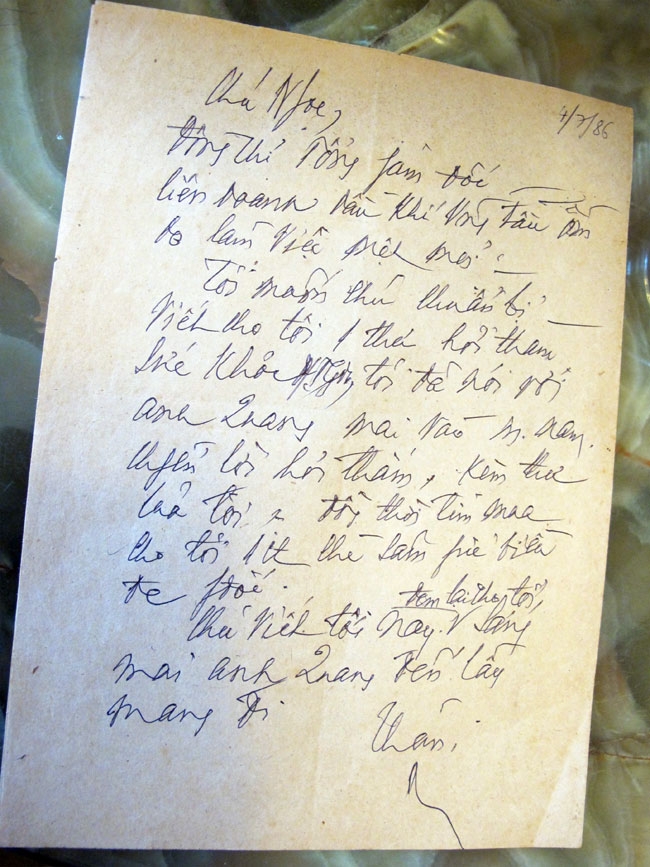 4/7/86
Chú Ngọc,
Đồng chí Tổng Giám đốc
liên doanh dầu khí Vũng Tàu ốm
do làm việc mệt mỏi.
Tôi muốn chú chuẩn bị
viết cho tôi 1 thư hỏi thăm
sức khỏe, tôi đã nói với
anh Quang mai vào M. Nam
chuyển lời hỏi thăm, kèm thư
của tôi, đồng thời tìm mua
cho tôi 1 ít chè sâm gửi biếu
đc
Chú viết tối nay, đem lại cho tôi, sáng
mai anh Quang đến lấy
mang đi
Thân.